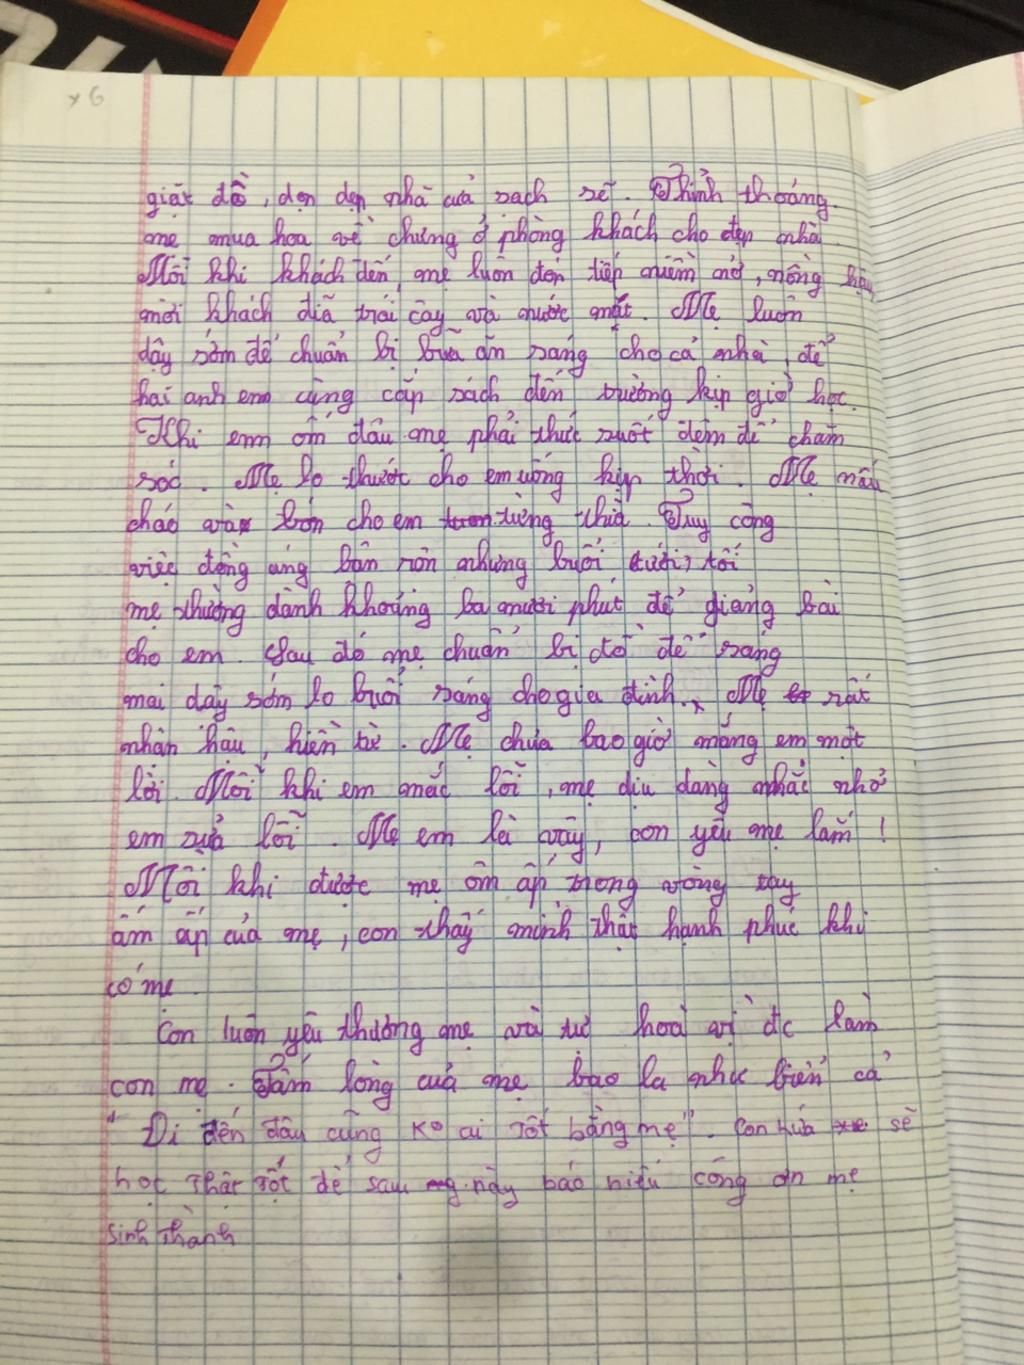 x 6
giặt đồ, dọn dẹp nhà cửa sạch sẽ. Thỉnh thoảng
mẹ mua hoa về chưng ở phòng khách cho đẹp nhà
Mỗi khi khách đến, mẹ luôn đón tiếp niềm nở, nồng hậu
mời khách dĩa trái cây và nước mát. Mẹ luôn
dậy sớm để chuẩn bị bữa ăn sáng cho cả nhà, để
hai anh em cùng cắp sách đến trường kịp giờ học.
Khi em ốm đâu mẹ phải thức suốt đêm để chăm
sóc. Mẹ lo thước cho em uống kịp thời. Mẹ nấu
cháo và bón cho em từng thìa. Tuy công
việc đồng áng bận rộn nhưng buổi tối
mẹ thường dành khoảng ba mươi phút để giảng bài
cho em. Sau đó mẹ chuẩn bị đồ để sáng
mai dậy sớm lo buổi sáng cho gia đình. Mẹ rất
nhân hậu, hiền từ. Mẹ chưa bao giờ mắng em một
lời. Mỗi khi em mắc lỗi, mẹ dịu dàng nhắc nhở
em sửa lỗi. Mẹ em là vậy, con yêu mẹ lắm!
Mỗi khi được mẹ ôm ấp trong vòng tay
ấm áp của mẹ, con thấy mình thật hạnh phúc khi
có mẹ.
Con luôn yêu thương mẹ và tự hoà vì đc làm
con mẹ. Tấm lòng của mẹ bao la như biển cả
" Đi đến đâu cũng ko ai tốt bằng mẹ". Con hứa sẽ
học thật tốt để sau này báo hiếu công ơn mẹ
sinh thành